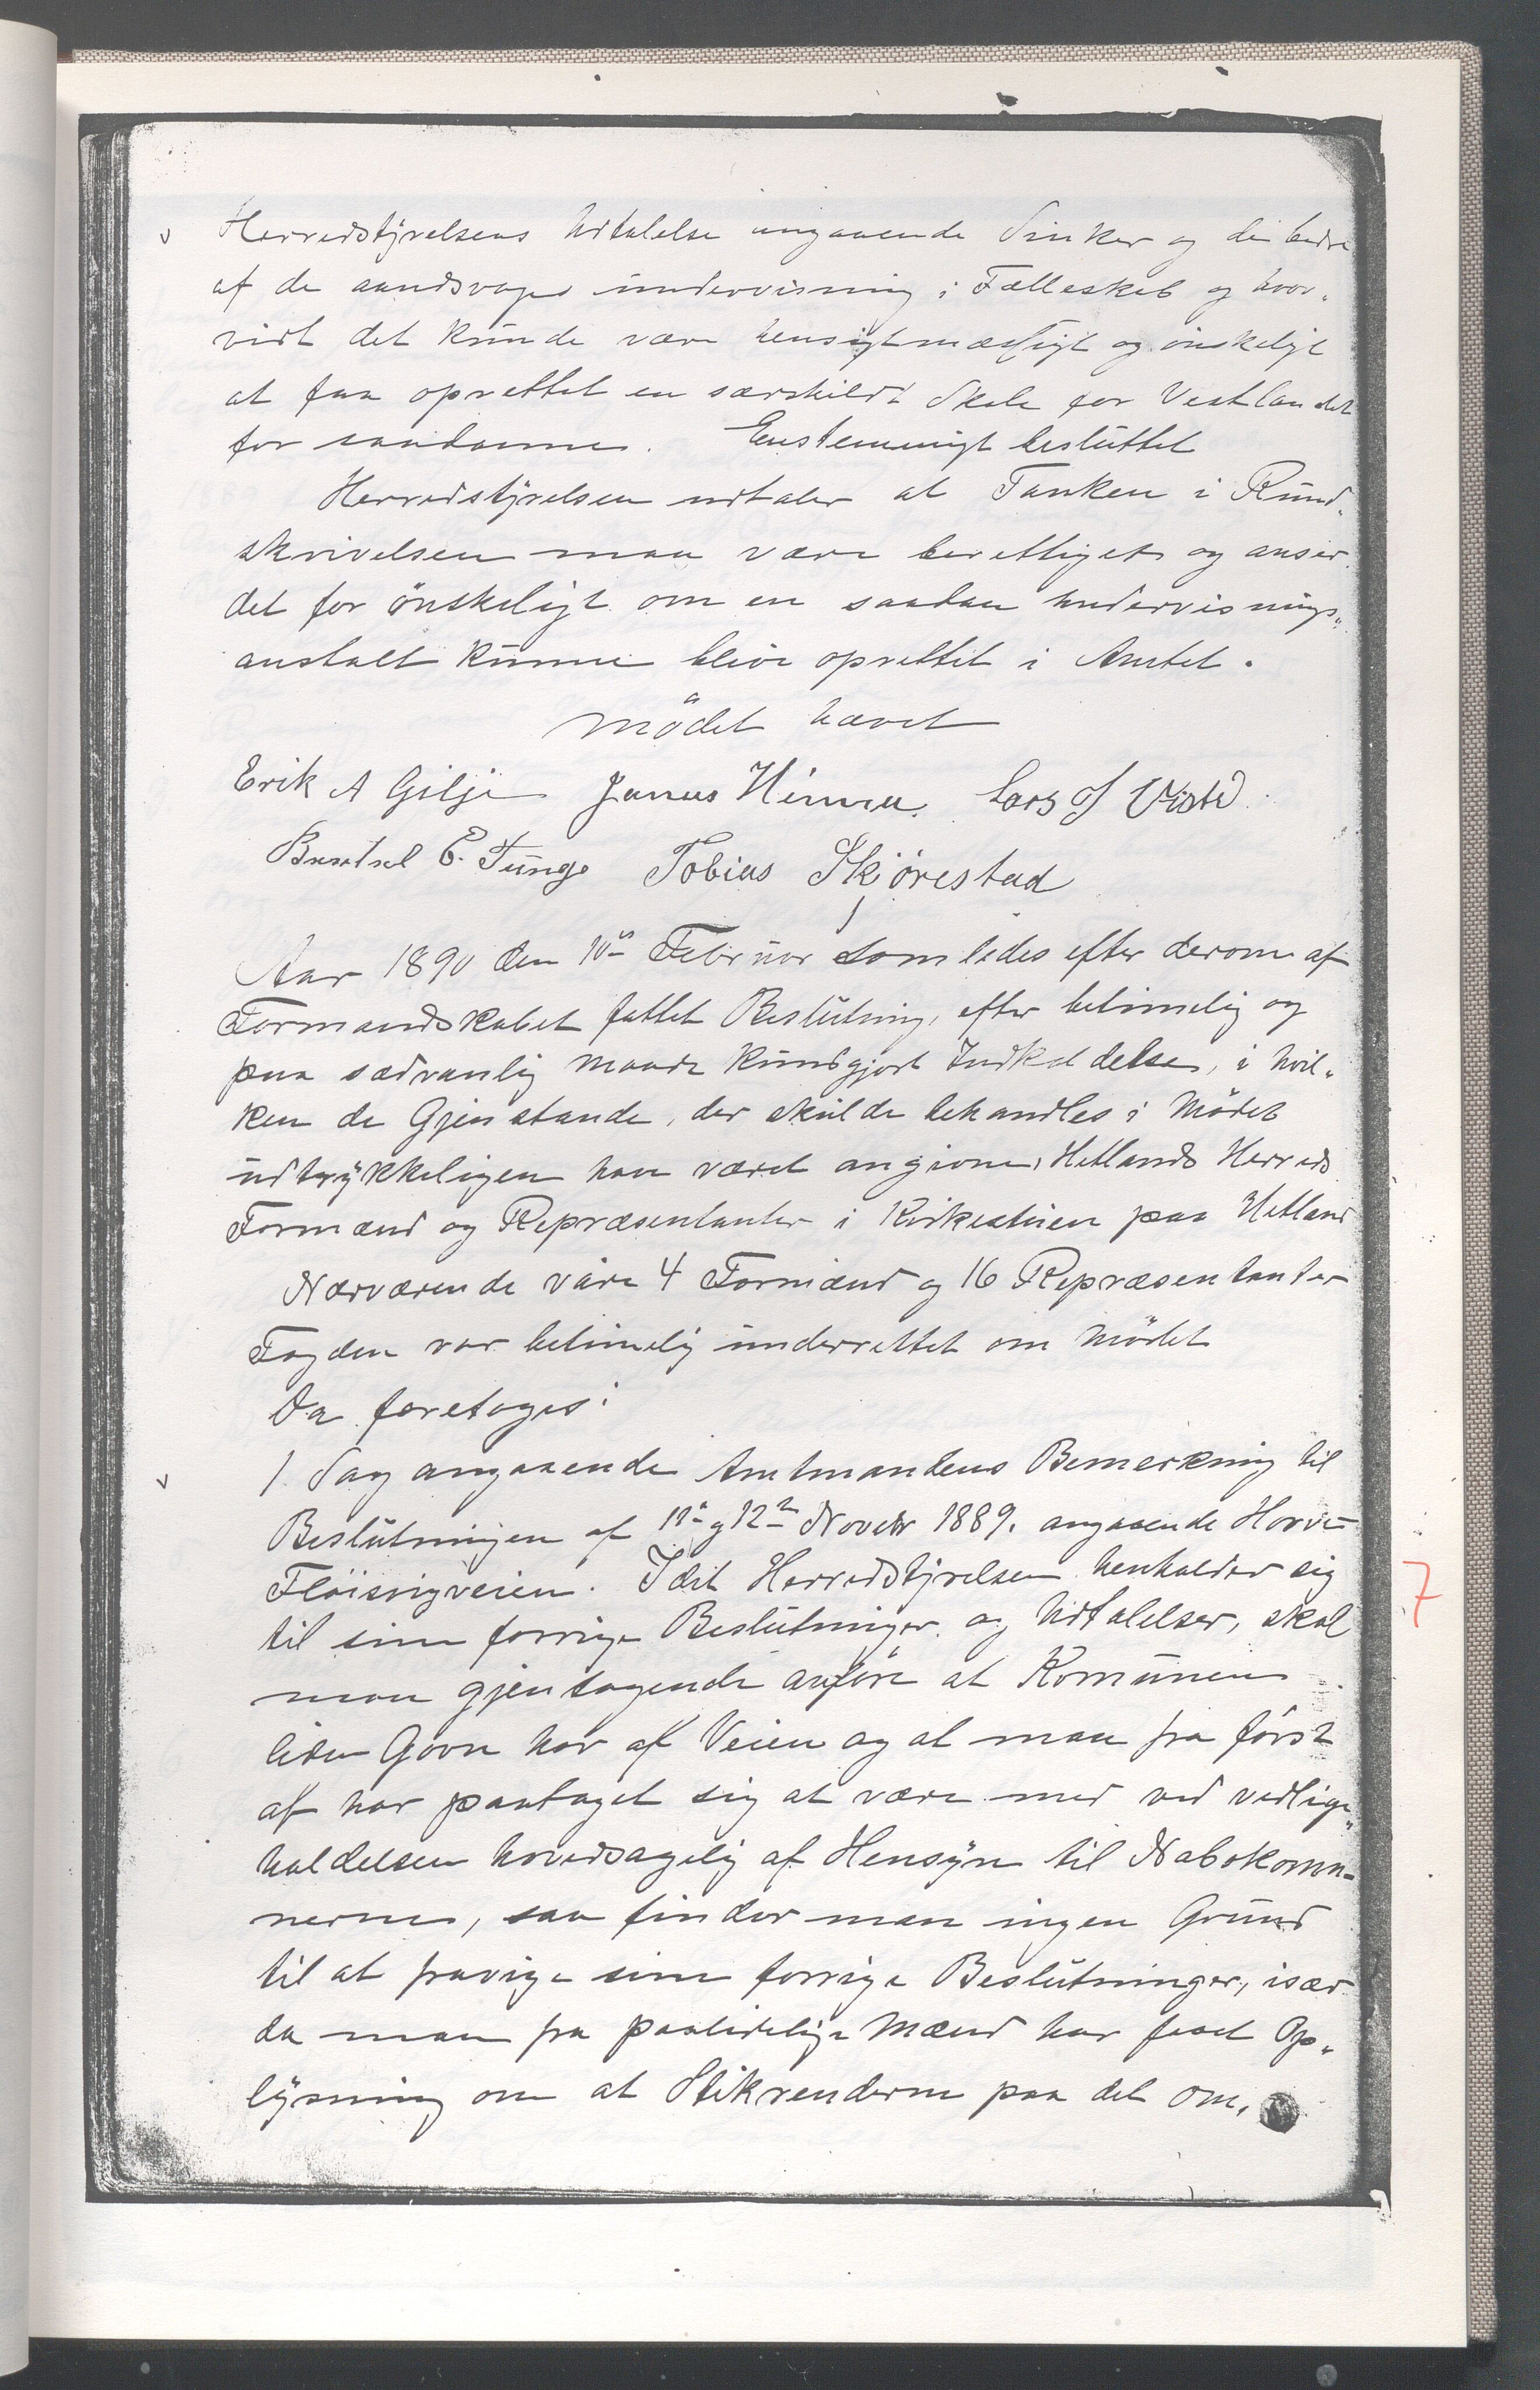 Herredstyrelsens Udtalelse angaaende Sinker og de bedre
af de aandsvages undervisning i Fælleskab og hvor„
vidt det kunde være hensigtmæssigt og ønskeligt
at faa oprettet en særskildt Skole for Vestlandet
for saadanne. Enstemmigt besluttet
Herredstyrelsen udtaler at Tanken i Rund„
skrivelsen maa være berettiget og anser
det for ønskeligt om en saadan undervisnings„
anstalt kunne blive oprettet i Amtet.
Mödet hævet
Erik A Gilje Janus Hinna. Lars J Viste
Bertel E. Tunge Tobias Skjörestad
Aar 1890 den 10de Februar samledes efter derom af
Formandskabet fattet Beslutning, efter betimelig og
paa sædvanlig Maade kundgjort Indkaldelse, i hvil„
ken de Gjenstande, der skulde behandles i Mödet
udtrykkeligen have været angivne, Hetlands Herreds
Formænd og Repræsentanter i Kirkestuen paa Hetland
Nærværende vare 4 Formænd og 16 Repræsentanter
Fogden var betimelig underrettet om Mödet
Da foretoges:
1. Sag angaaende Amtmandens Bemerkning til
Beslutningen af 11te og 12te Novebr 1889. angaaende Horve-
Flöisvigveien. Idet Herredstyrelsen henholder sig
til sine forrige Beslutninger og Udtalelser, skal
man gjentagende anföre at Komunen
liden Gavn har af Veien og at man fra först
af har paataget sig at være med ved vedlige„
holdelsen hovedsagelig af Hensyn til Nabokomu-
nerne, saa finder man ingen Grund
til at fravige sine forrige Beslutninger, især
da man fra paalidelige Mænd har faaet Op„
lysning om at Stikrenderne paa det om„
7